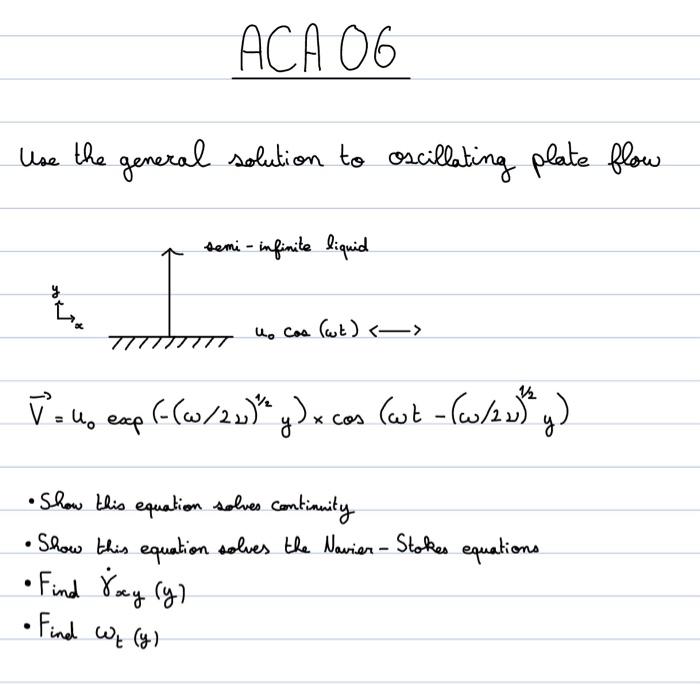 ACA 06
Use the general solution to oscillating plate flow
semi-infinite liquid
y
x
u₀ cos (ωt) <—>
V⃗ = u₀ exp (-(ω/2ν)^1/2 y) × cos (ωt - (ω/2ν)^1/2 y)
• Show this equation solves continuity
• Show this equation solves the Navier-Stokes equations
• Find γ̇xy (y)
• Find ωt (y)